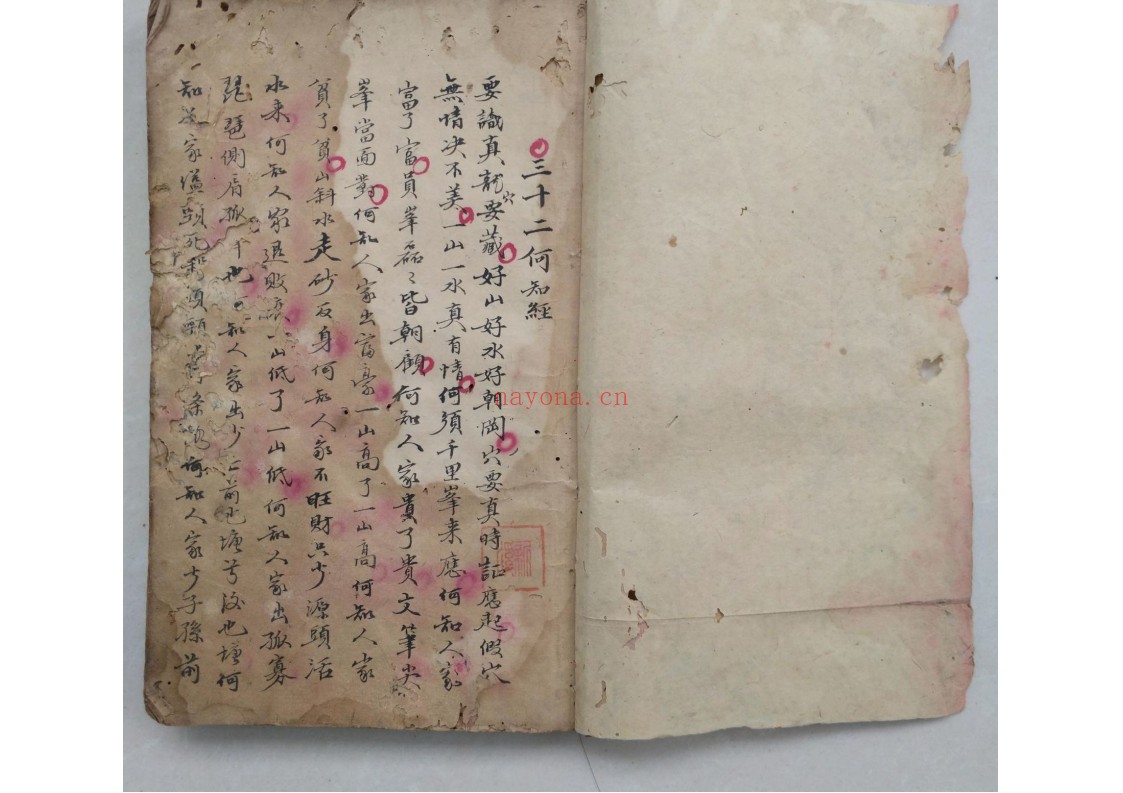 三十二何知經
要識真龍穴要藏好山好水好朝岡穴要真時証應起假穴
無情决不美一山一水真有情何須千里峯来應何知人家
富了富員峯磊〻皆朝顧何知人家貴了貴文筆尖
峯當面對何知人家出富豪一山高了一山高何知人家
貧了貧山斜水走砂反身何知人家不旺財只少源頭活
水来何知人家退敗 山低了一山低何知人家出孤寡
琵琶側扇孤 也 知人家出少亡前也塘兮後也塘何
知 家 死 頭 条 何知人家少子孫前
nayona.cn